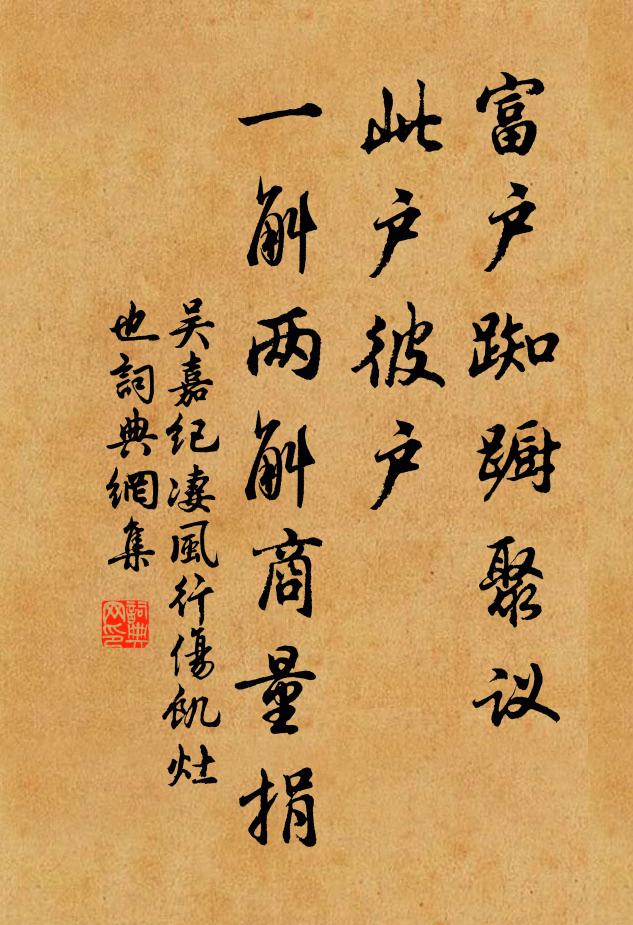 富户踟蹰聚议
此户彼户
一斛两斛商量捐
吴嘉纪凄風行傷飢灶
也詞典網集
詞典
网印